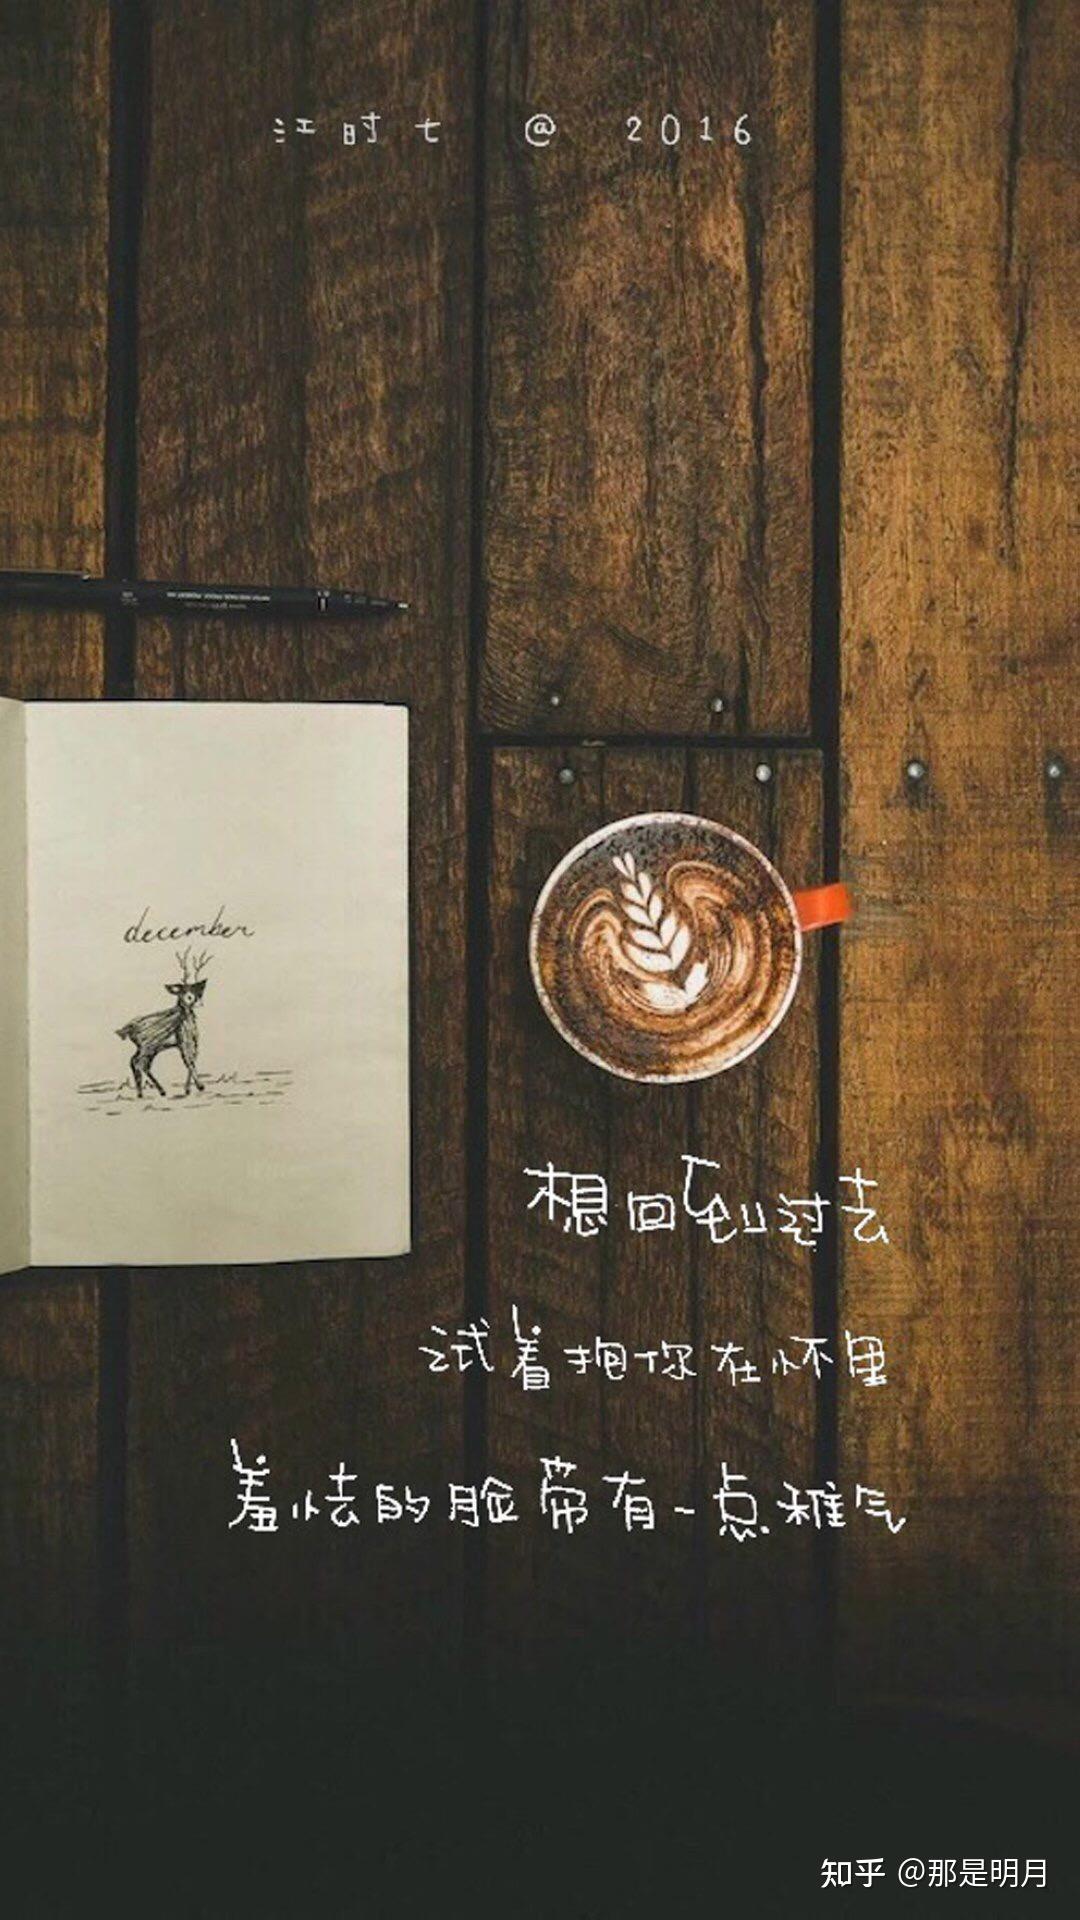 江时七 @ 2016
december
想回到过去
试着抱你在怀里
羞怯的脸带有一点稚气
知乎 @那是明月